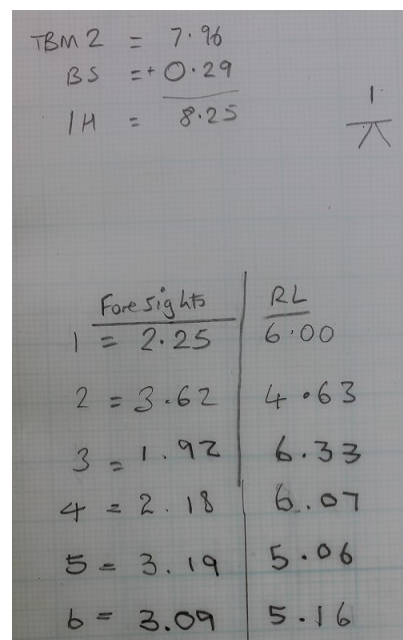 TBM 2 = 7.96
BS = + 0.29
IH = 8.25
1
Foresights RL
1 = 2.25 6.00
2 = 3.62 4.63
3 = 1.92 6.33
4 = 2.18 6.07
5 = 3.19 5.06
6 = 3.09 5.16